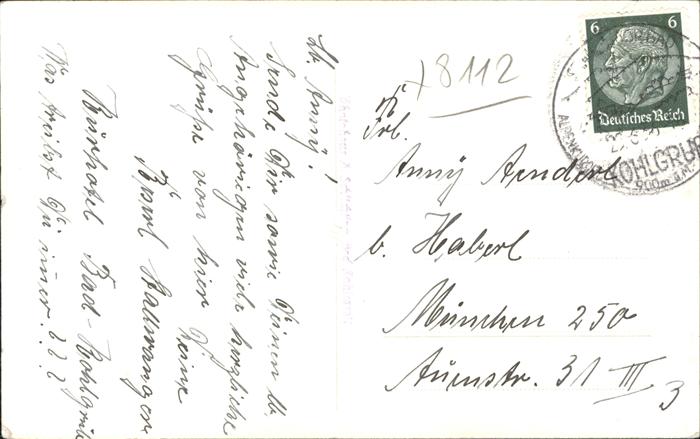 Lb. Anny!
Sende Dir sowie Deinen lb.
Angehörigen viele herzliche
Grüße von hier Deine
Kurhotel Bad-Kohlgrub
Was treibst Du immer. ? ? ?
+8112
Frl.
Anny Aenderl
b. Haberl
München 25a
Auenstr. 31 III
3
6 6
Deutsches Reich
KOHLGRUB
900m